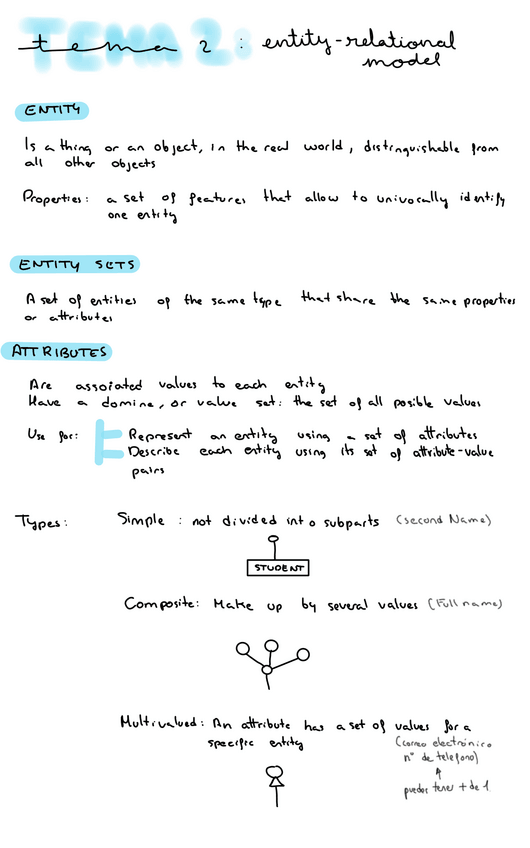 TEMA 2:
tema 2: entity-relational
model
ENTITY
Is a thing or an object, in the real world, distinguishable from
all other objects
Properties: a set of features that allow to univocally identify
one entity
ENTITY SETS
A set of entities of the same type that share the same properties
or attributes
ATTRIBUTES
Are assoiated values to each entity
Have a domine, or value set: the set of all posible values
Use for: Represent an entity using a set of attributes
Describe each entity using its set of attribute-value
pairs
Types: Simple: not divided into subparts (second Name)
STUDENT
Composite: Make up by several values (Full name)
Multivalued: An attribute has a set of values for a
specific entity
(correo electrónico
nº de teléfono)
puedes tener + de 1